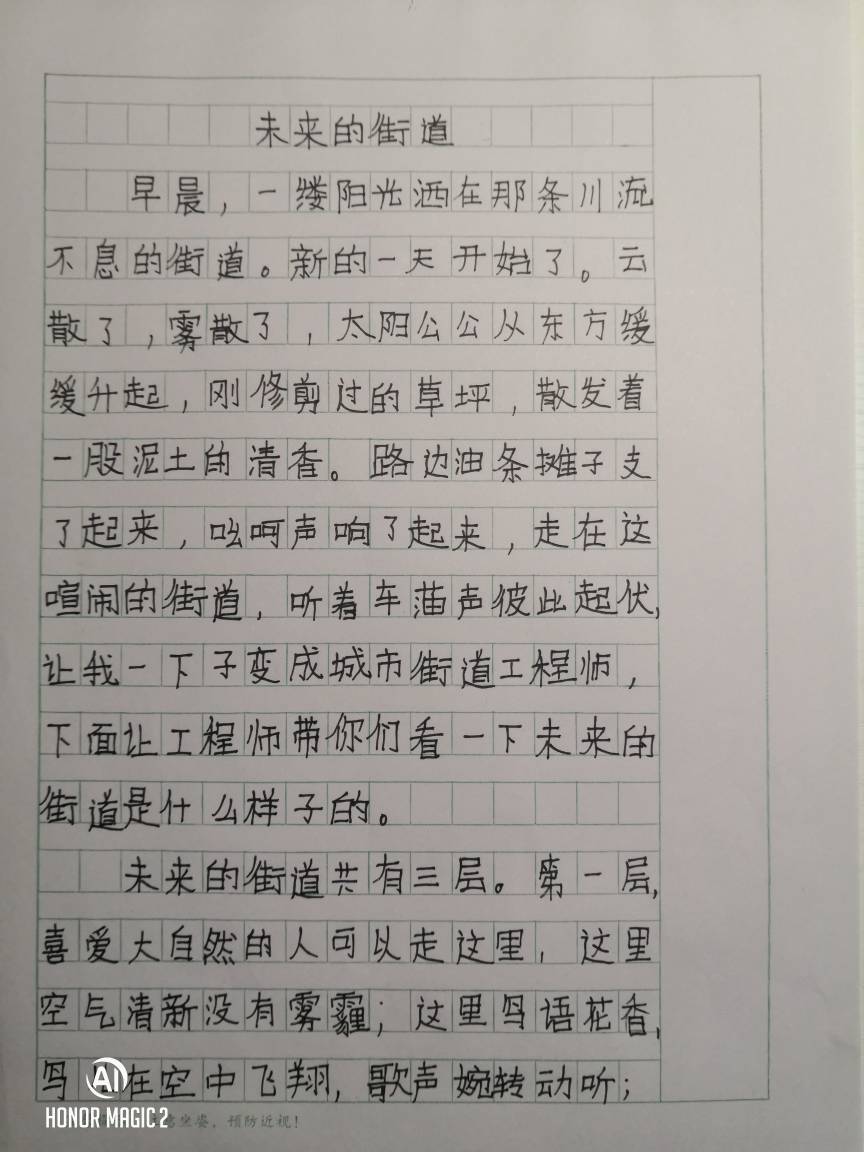 未来的街道
早晨，一缕阳光洒在那条川流
不息的街道。新的一天开始了。云
散了，雾散了，太阳公公从东方缓
缓升起，刚修剪过的草坪，散发着
一股泥土的清香。路边油条摊子支
了起来，吆呵声响了起来，走在这
喧闹的街道，听着车笛声彼此起伏，
让我一下子变成城市街道工程师，
下面让工程师带你们看一下未来的
街道是什么样子的。
未来的街道共有三层。第一层，
喜爱大自然的人可以走这里，这里
空气清新没有雾霾；这里鸟语花香，
鸟 在空中飞翔，歌声婉转动听；
AI
HONOR MAGIC 2
坐姿，预防近视！